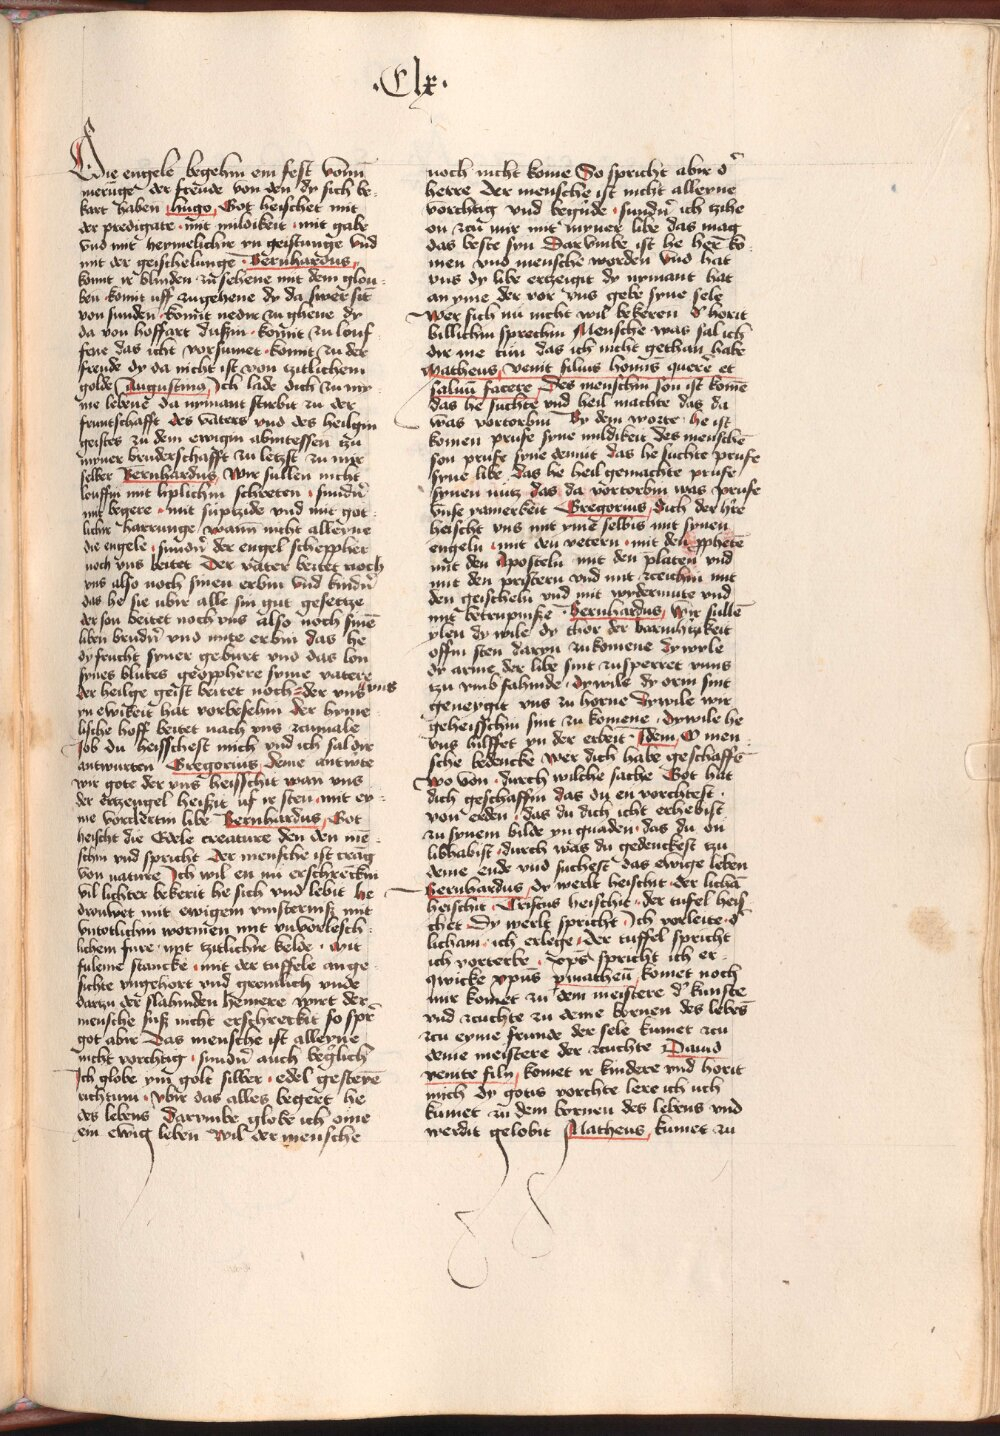 ·Clx·
Die engele begehin ein fest vōnn
meruge der freude von den dy sich be-
kart haben Hugo Got heischet mit
der predigate · mit mildikeit · mit gabe
vnd mit heymelichir yn geistunge vnd
mit der geischelunge · Bernhardus
komt ir blinden zu sehene mit dem glou-
ben · komit uff zugehene dy da swer sit
von sunden · komit nedir zu ghene dy
da von hoffart dußin · komit zu louf-
fene das icht vorsumet · komit zu der
freude dy da nicht ist von tzitlichem
golde Augustino Ich lade dich zu my-
me lebene da nymant stirbit zu der
fruntschafft des vaters vnd des heilgin
geistes zu dem ewigin abintessen tzu
myner bruderschafft zu letzst zu mir
selber Bernhardus Wir sullen nicht
louffin mit liplichin schreten · sundir̄
mit begere · mit suftzide vnd mit got-
lichir harrunge wann nicht alleyne
die engele · sundir̄ der engel schepphet
noch vns beitet Der vater beitet noch
vns also noch sinen erbin vnd kindir̄
das he sie ubir alle sin gut gesettze
der son beitet noch vns also noch sinē
libin brudir̄ vnd mite erbin das he
dy frucht syner geburt vnd das lon
synes blutes geopphere syme vatere
der heilge geist beitet noch vns der vns
yn ewikeit hat vorbesehin der hyme-
lische hoff beitet nach vns zcumale
Job du heisschest mich vnd ich sal dir
antwurten Gregorius deme antwte
wir gote der vns heisschit wan vns
der ertzengel heißit uf ir sten · mit ey-
me vorclertin libe Bernhardus Got
heischt die Edele creature den den mē-
schin vnd spricht Der mensche ist trag
von nature Ich wil en nu erschreckin
vil lichter bekerit he sich vnd lebit he
drouwet mit ewigem vinsterniß mit
vntotlichin wormen mit vnvorlesch-
lichem fure · mit tzitlichir kelde · Mit
fuleme stancke · mit der tuffele ange-
sichte vngehort vnd greulich vnde
dartzu der slahinden hemere wirt der
mensche suß nicht erschreckit so spr̄
got abir Das mensche ist alleyne
nicht vorchtig · sundir̄ auch beg̾lich
Ich globe ym golt silber · edel gesteyē
richtum · vbir das alles begert he
des lebens Darvmbe globe ich eme
ein ewig leben Wil der mensche
noch nicht kome So spricht abir d̾
herre Der mensche ist nicht alleyne
vorchtig vnd beg̾nde · sundir̄ ich tzihe
on zcu mir mit myner libe das mag
das beste syn Darvmbe ist he here ko-
men vnd mensche worden vnd hat
vns dy libe ertzeigit dy nymant hat
an yme der vor vns gebe syne sele
Wer sich nu nicht wil bekeren d̾ horit
billichin sprechin Mensche was sal ich
dir me tun das ich nicht gethan habe
Matheus venit filius homīs querē et
saluū facere Des menschin son ist komē
das he suchte vnd heil machte das da
was vortorbin By dem worte · he ist
komen prufe syne mildikeit des menschē
son prufe syne demut das he suchte prufe
syne libe das he heil gemachte prufe
synen nutz das da vortorbin was prufe
vnse yamerkeit Gregorius dich der h̾re
heischt vns mit yme selbis mit synen
engeln · mit den vetern · mit den ꝓphetē
mit den Aposteln mit den platen vnd
mit den pristern vnd mit zceichin mit
den geischeln vnd mit wydermute vnd
mit betrupniße Bernhardus Wir sullē
ylen dy wile dy thor der barmh̾tzikeit
offin sten daryn zukomene dy wyle
dy arme der libe sint zusperret vnns
tzu vmbfahinde · dy wile dy orin sint
geneygit vns zu horne Dy wile wir
geheisschin sint zu komene · dy wile he
vns hilffet yn der erbeit · Idem O men-
sche bedencke wer dich habe geschaffē
wo von · durch wilche sache Got hat
dich geschaffin das du en vorchtest ·
von erden · das du dich icht erhebist
zu synem bilde yn gnaden · das du on
libhabist · durch was du gedenckest tzu
deme ende vnd suchest das ewige leben
Bernhardus dy werlt heischit · der lichā
heischit · Cristus heischit · der tufel heis-
chet Dy werlt spricht Ich vorleite · d̾
licham · ich erlege · der tuffel spricht
ich vorterbe · xp̄s spricht ich er-
qwicke xpūs ymatheū komet noch
mir komet zu dem meistere d̾ kunste
vnd zcuchte zu deme bornen des lebēs
zcu eyme frunde der sele kumet zcu
deme meistere der zcuchte David
venite filij komet ir kindere vnd horit
mich dy gotis vorchte lere ich uch
kumet zu dem bornen des lebens vnd
werdit gelobit Matheus kumet zu